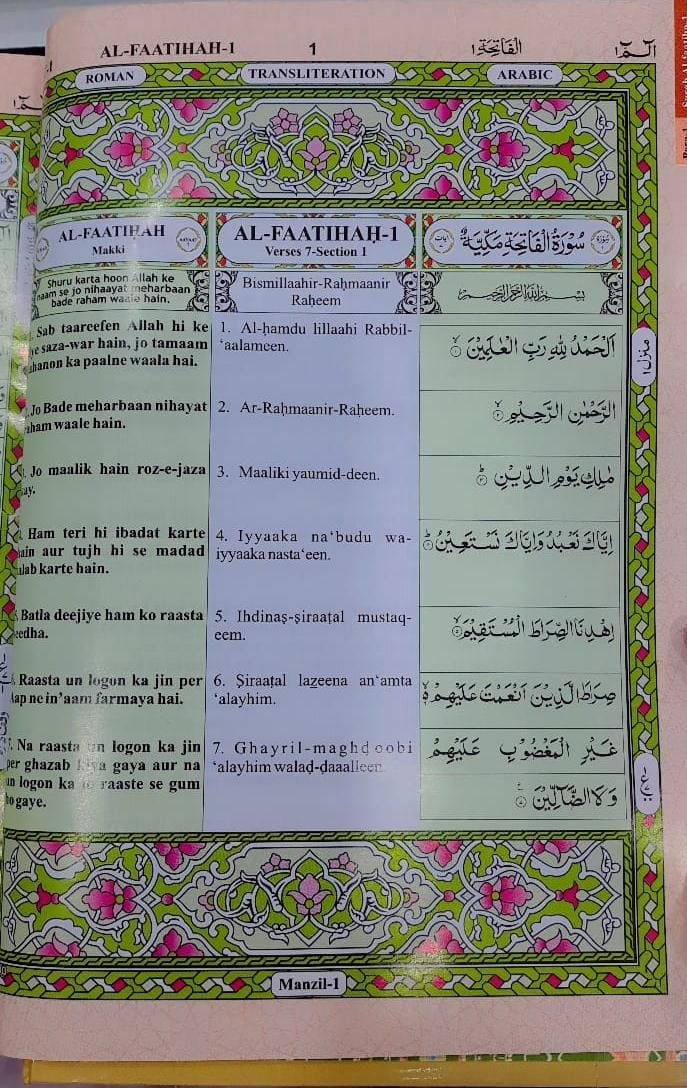 AL-FAATIHAH-1 1 الْفَاتِحَة ١ الٓمّٓ ١
ROMAN TRANSLITERATION ARABIC
AL-FAATIHAH
Makki
AL-FAATIHAḤ-1
Verses 7-Section 1
سُوْرَةُ الْفَاتِحَةِ مَكِّيَّةٌ
Shuru karta hoon Allah ke
naam se jo nihaayat meharbaan
bade raham waale hain.
Bismillaahir-Raḥmaanir
Raḥeem
بِسْمِ اللّٰهِ الرَّحْمٰنِ الرَّحِيْمِ
Sab taareefen Allah hi ke
ye saza-war hain, jo tamaam
ahanon ka paalne waala hai.
1. Al-ḥamdu lillaahi Rabbil-
‘aalameen.
اَلْحَمْدُ لِلّٰهِ رَبِّ الْعٰلَمِيْنَ ۙ‏﴿۱﴾
Jo Bade meharbaan nihayat
aham waale hain.
2. Ar-Raḥmaanir-Raḥeem.
الرَّحْمٰنِ الرَّحِيْمِ ۙ‏﴿۲﴾
Jo maalik hain roz-e-jaza
ay.
3. Maaliki yaumid-deen.
مٰلِكِ يَوْمِ الدِّيْنِ ؕ‏﴿۳﴾
Ham teri hi ibadat karte
hain aur tujh hi se madad
alab karte hain.
4. Iyyaaka na‘budu wa-
iyyaaka nasta‘een.
اِيَّاكَ نَعْبُدُ وَاِيَّاكَ نَسْتَعِيْنُ ؕ‏﴿۴﴾
Batla deejiye ham ko raasta
eedha.
5. Ihdinaṣ-ṣiraaṭal mustaq-
eem.
اِهْدِنَا الصِّرَاطَ الْمُسْتَقِيْمَ ۙ‏﴿۵﴾
Raasta un logon ka jin per
aap ne in’aam farmaya hai.
6. Ṣiraaṭal lazeena an‘amta
‘alayhim.
صِرَاطَ الَّذِيْنَ اَنْعَمْتَ عَلَيْهِمْ ۙ‏﴿۶﴾
Na raasta un logon ka jin
per ghazab kiya gaya aur na
un logon ka jo raaste se gum
ho gaye.
7. Ghayril-maghḍoobi
‘alayhim walaḍ-ḍaaalleen.
غَيْرِ الْمَغْضُوْبِ عَلَيْهِمْ
وَلَا الضَّآلِّيْنَ ‏﴿۷﴾
منزل ١
Manzil-1